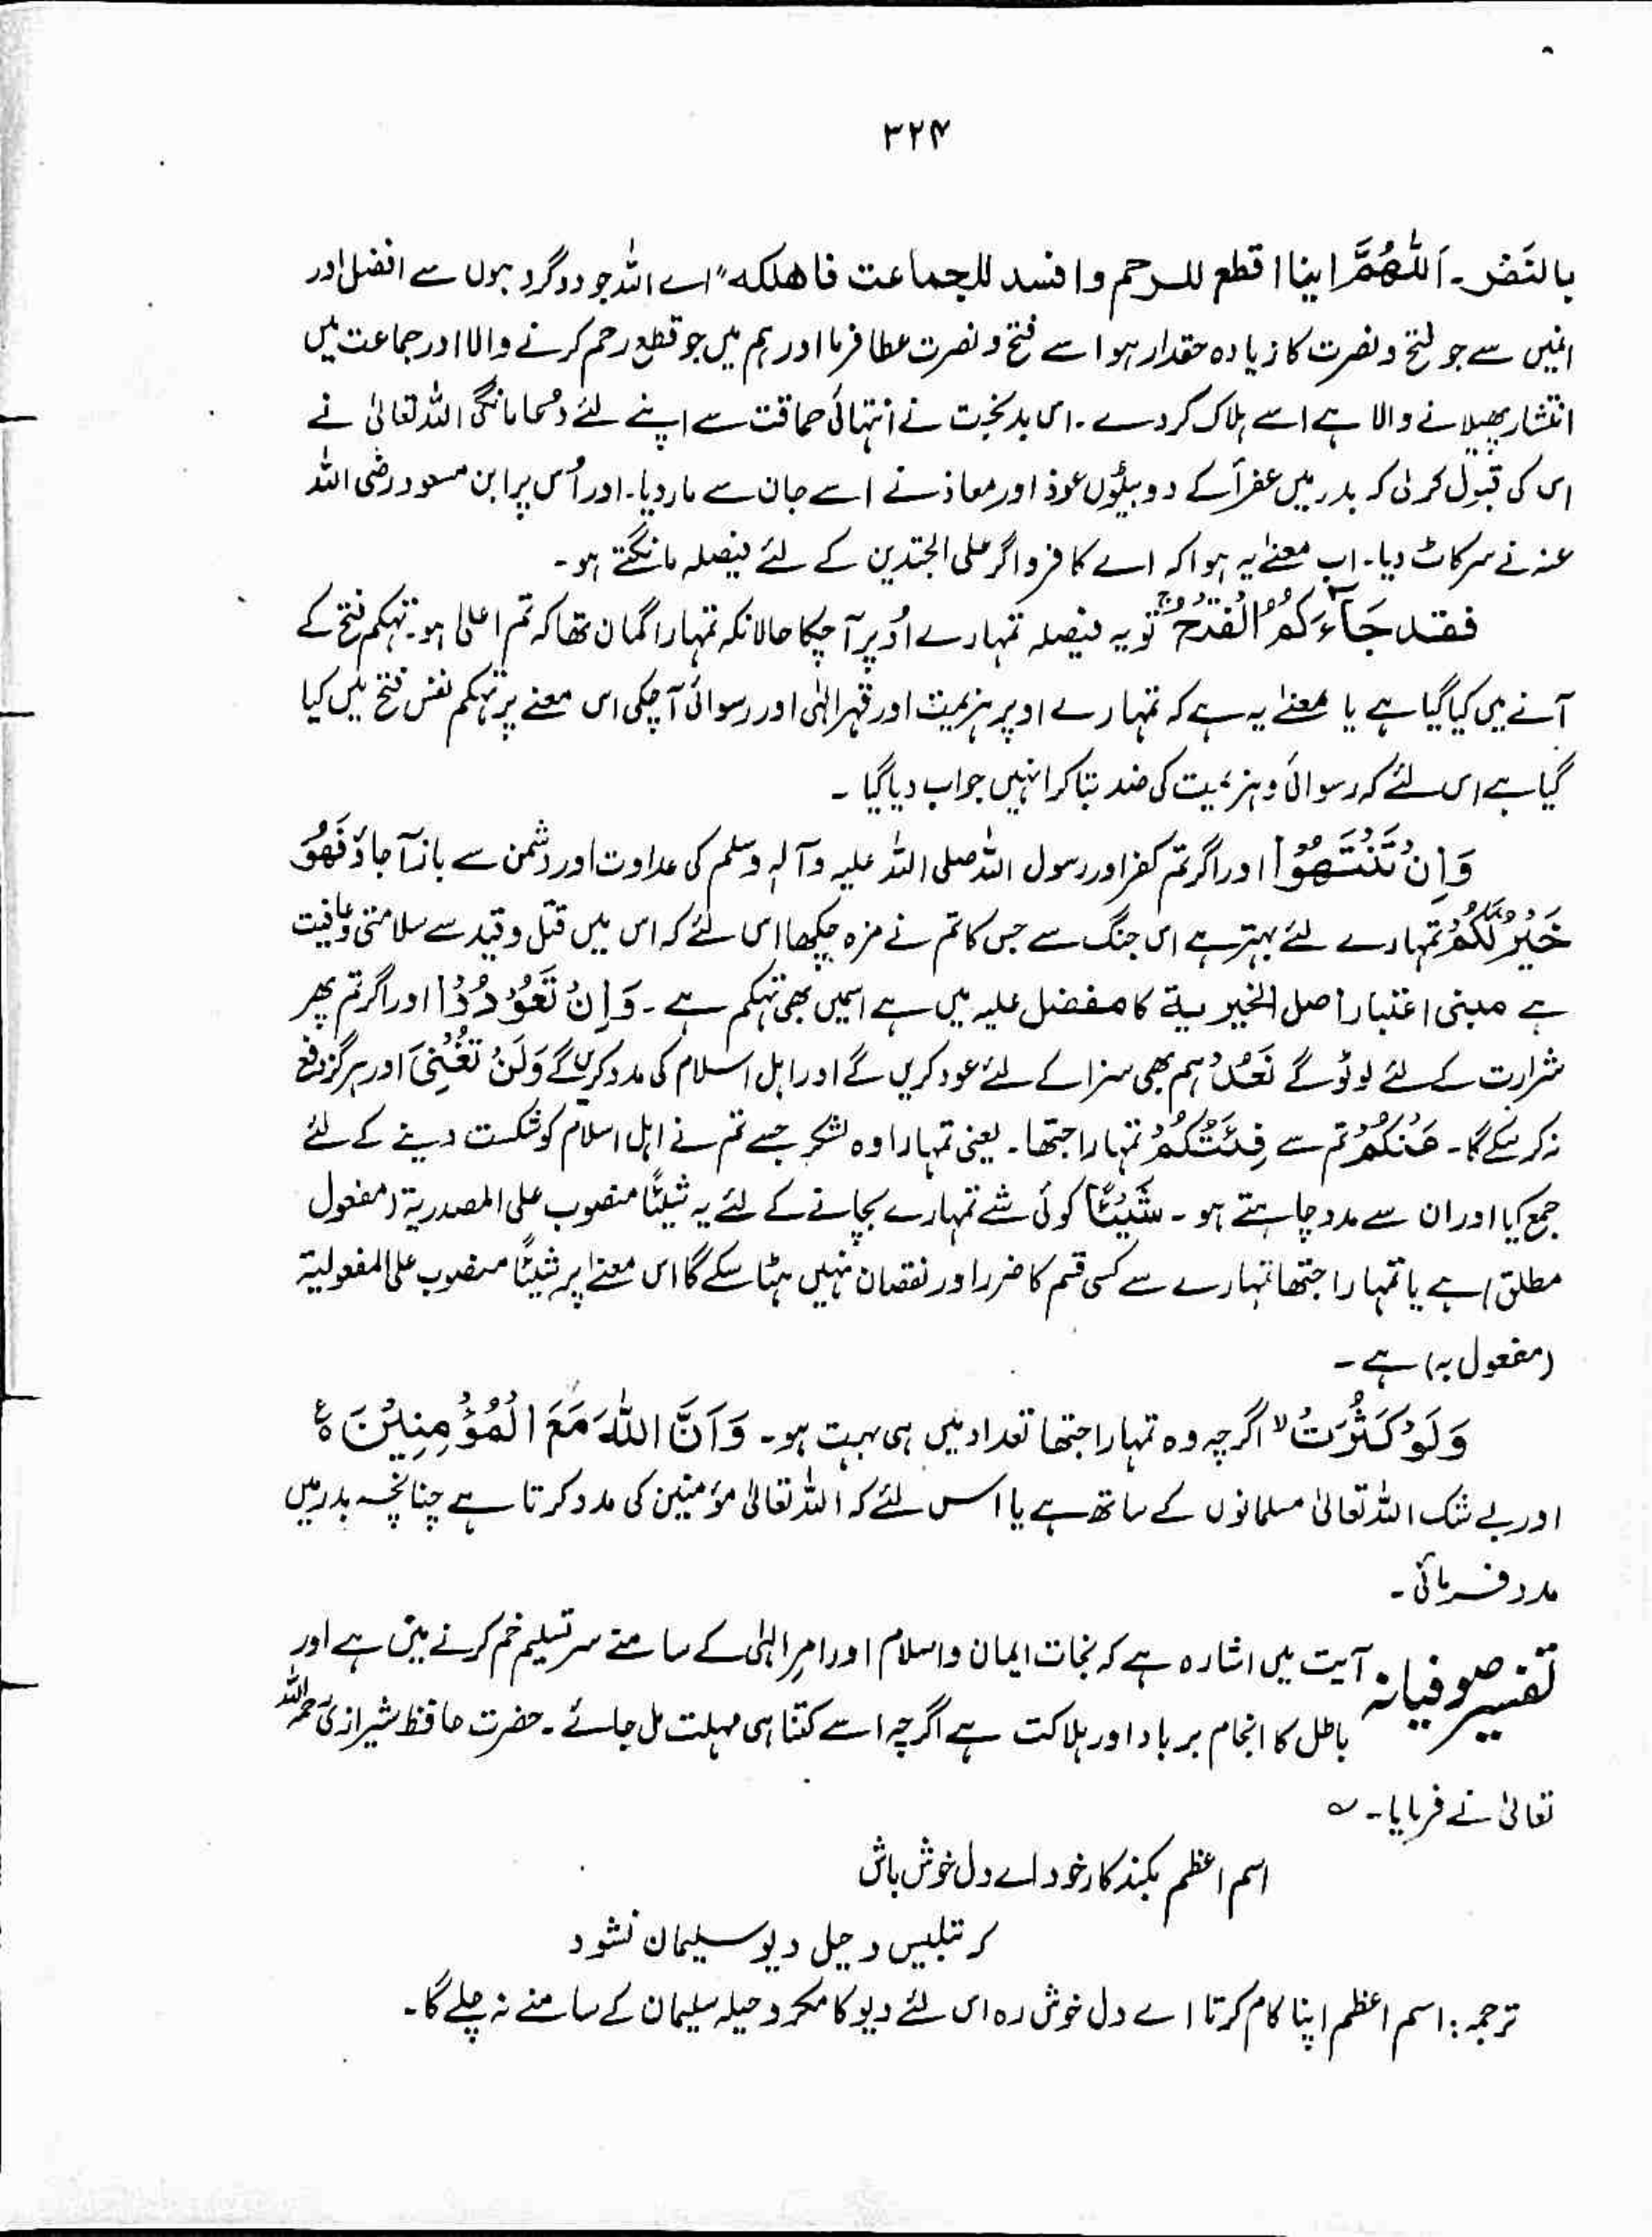 ۳۲۴
بالنصر۔ اَللّٰھُمَّ اینا اقطع للرحم وافسد للجماعت فاھلکہ" اے اللہ جو دو گروہوں سے افضل اور
انمیں سے جو فتح و نصرت کا زیادہ حقدار ہو اسے فتح و نصرت عطا فرما اور ہم میں جو قطع رحم کرنے والا اور جماعت میں
انتشار پھیلانے والا ہے اسے ہلاک کر دے۔ اس بد بخت نے انتہائی حماقت سے اپنے لئے دُعا مانگی اللہ تعالیٰ نے
اس کی قبول کر لی کہ بدر میں عفرأ کے دو بیٹوں عوذ اور معاذ نے اسے جان سے مار دیا۔ اور اُس پر ابن مسعود رضی اللہ
عنہ نے سر کاٹ دیا۔ اب معنےٰ یہ ہوا کہ اے کافرو اگر علی الجندین کے لئے فیصلہ مانگتے ہو۔
فقد جَآءَكُمُ الْفَتْحُ ۚ تو یہ فیصلہ تمہارے اُوپر آ چکا حالانکہ تمہارا گمان تھا کہ تم اعلیٰ ہو۔ تہکم فتح کے
آنے میں کیا گیا ہے یا معنےٰ یہ ہے کہ تمہارے اوپر ہزیمت اور قہر الٰہی اور رسوائی آ چکی اس معنے پر تہکم نفس فتح میں کیا
گیا ہے اس لئے کہ رسوائی و ہزیمیت کی ضد بتا کر انہیں جواب دیا گیا ۔
وَاِنْ تَنْتَهُوْا اور اگر تم کفر اور رسول اللہ صلی اللہ علیہ وآلہٖ وسلم کی عداوت اور دشمن سے باز آ جاؤ فَهُوَ
خَيْرٌ لَّكُمْ تمہارے لئے بہتر ہے اس جنگ سے جس کا تم نے مزہ چکھا اس لئے کہ اس میں قتل و قید سے سلامتی و عافیت
ہے مبنی اعتبار اصل الخیریۃ کا مفضل علیہ میں ہے اسمیں بھی تہکم ہے۔ وَاِنْ تَعُوْدُوْا اور اگر تم پھر
شرارت کے لئے لوٹو گے نَعُدْ ہم بھی سزا کے لئے عود کریں گے اور اہل اسلام کی مدد کریں گے وَلَنْ تُغْنِیَ اور ہرگز دفع
نہ کر سکے گا۔ عَنْكُمْ تم سے فِئَتُكُمْ تمہارا جتھا۔ یعنی تمہارا وہ لشکر جسے تم نے اہل اسلام کو شکست دینے کے لئے
جمع کیا اور ان سے مدد چاہتے ہو ۔ شَيْئًا کوئی شے تمہارے بچانے کے لئے یہ شیئًا منصوب علی المصدریۃ (مفعول
مطلق) ہے یا تمہارا جتھا تمہارے سے کسی قسم کا ضرر اور نقصان نہیں ہٹا سکے گا اس معنےٰ پر شیئًا منصوب علی المفعولیۃ
(مفعول بہ) ہے ۔
وَلَوْ كَثُرَتْ ۙ اگرچہ وہ تمہارا جتھا تعداد میں ہی بہت ہو۔ وَاَنَّ اللّٰهَ مَعَ الْمُؤْمِنِيْنَ ع
اور بے شک اللہ تعالیٰ مسلمانوں کے ساتھ ہے یا اس لئے کہ اللہ تعالیٰ مؤمنین کی مدد کرتا ہے چنانچہ بدر میں
مدد فرمائی۔
تفسیر صوفیانہ: آیت میں اشارہ ہے کہ نجات ایمان و اسلام اور امر الٰہی کے سامنے سر تسلیم خم کرنے میں ہے اور
باطل کا انجام برباد اور ہلاکت ہے اگرچہ اسے کتنا ہی مہلت مل جائے ۔ حضرت حافظ شیرازی رحمہ اللہ
تعالیٰ نے فرمایا۔ ؎
اسم اعظم بکند کار خود اے دل خوش باش
کہ تلبیس و حیل دیو سلیمان نشود
ترجمہ: اسم اعظم اپنا کام کرتا اے دل خوش رہ اس لئے دیو کا مکر و حیلہ سلیمان کے سامنے نہ چلے گا۔